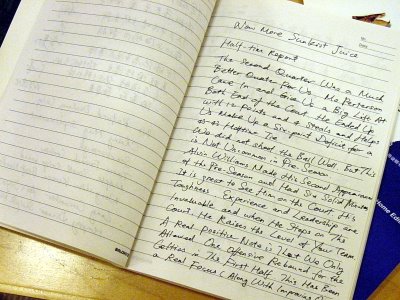 No.
Date
Now More Sunkist Juice
Half-time Report
The Second Quarter Was a Much
Better Quarter for Us. Mo Peterson
Came In and Gave Us a Big Lift At
Both End of the Court. He Ended Up
with 12 points and 4 Steals and Helped
Us Make Up a Six-point Deficit for a
Halftime Tie
We did not shoot the Ball Well. But This
is Not Uncommon in Pre-Season
Alvin Williams Made His Second Appearance
of the Pre-Season and Had Six Solid Minutes
It is great to See Him on the Court. His
Toughness Experience and Leadership are
Invaluable and when He Steps on The
Court. He Raises the Level of Your Team
A Real positive Note is That We Only
Allowed One Offensive Rebound for the
in The First Half. This Has Been
a Real Focus (Along With Improving
Home Edu